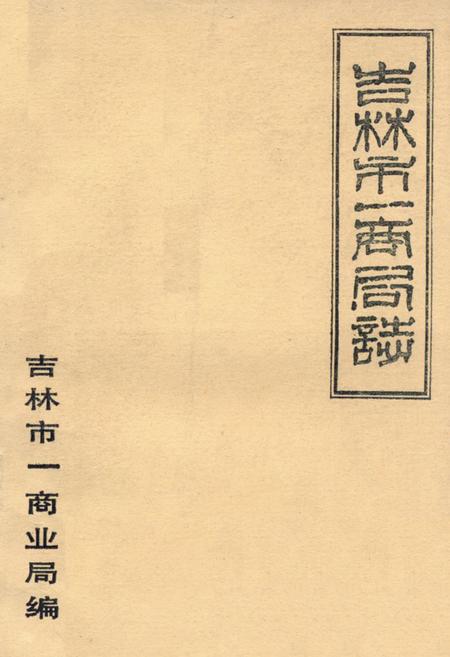 吉林市一商局誌
吉林市一商业局编